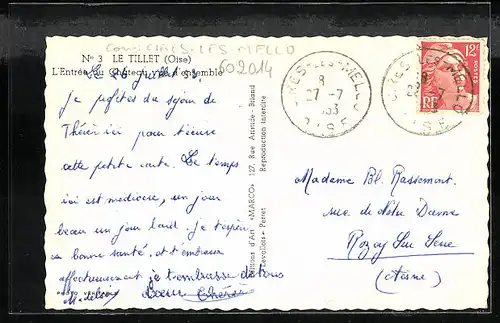 Com: CIRES-LES-MELLO
N° 3 LE TILLET (Oise)
L'Entrée du Château, vue d'ensemble
602014
Je profite du séjour de
Thérèse ici pour t'écrire
cette petite carte. Le temps
ici est médiocre, un jour
beau un jour laid. Je t'espère
en bonne santé, et t'embrasse
affectueusement je t'embrasse de tout
Cœur Thérèse
PHOTO
Editions d'Art «MARCO» 127, Rue Aristide-Briand
Levallois-Perret
Reproduction interdite
CIRES-LES-MELLO
8
27-7
OISE
12F
RF
CIRES-LES-MELLO
OISE
Madame Bl. Rassemont
rue de Notre Dame
Rozoy Sur Serre
(Aisne)